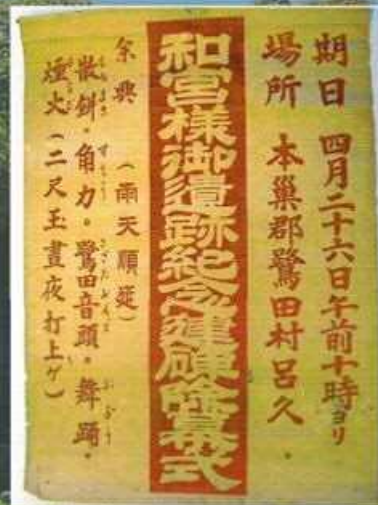 期日 四月二十六日午前十時ヨリ
場所 本巣郡鷺田村呂久。
和宮様御遺跡紀念建碑除幕式
余興 (雨天順延)
散餅。角力。鷺田音頭。舞踊。
煙火(二尺玉晝夜打上ゲ)